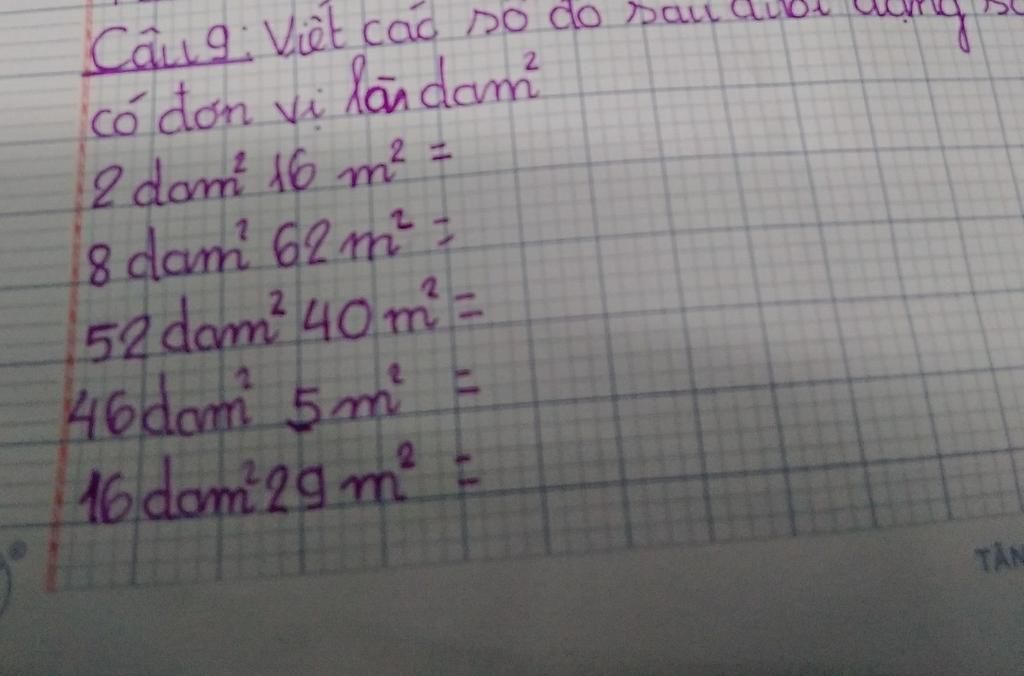 Câu 9: Viết các số đo sau dưới dạng số
có đơn vị là dam²
2 dam² 16 m² =
8 dam² 62 m² =
52 dam² 40 m² =
46 dam² 5 m² =
16 dam² 29 m² =
TÂN